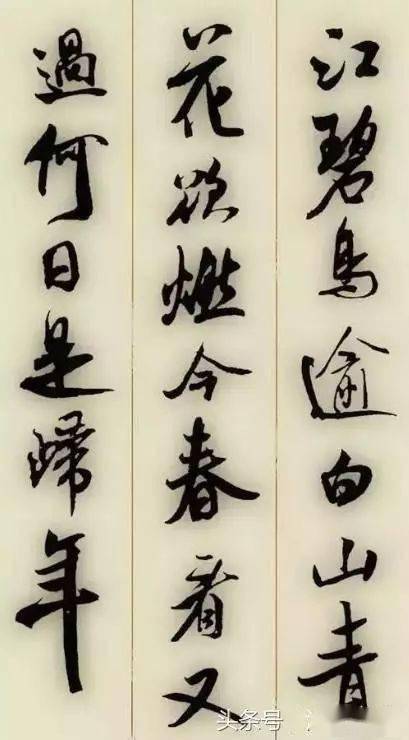 江碧鳥逾白山青
花欲燃今春看又
過何日是歸年
头条号